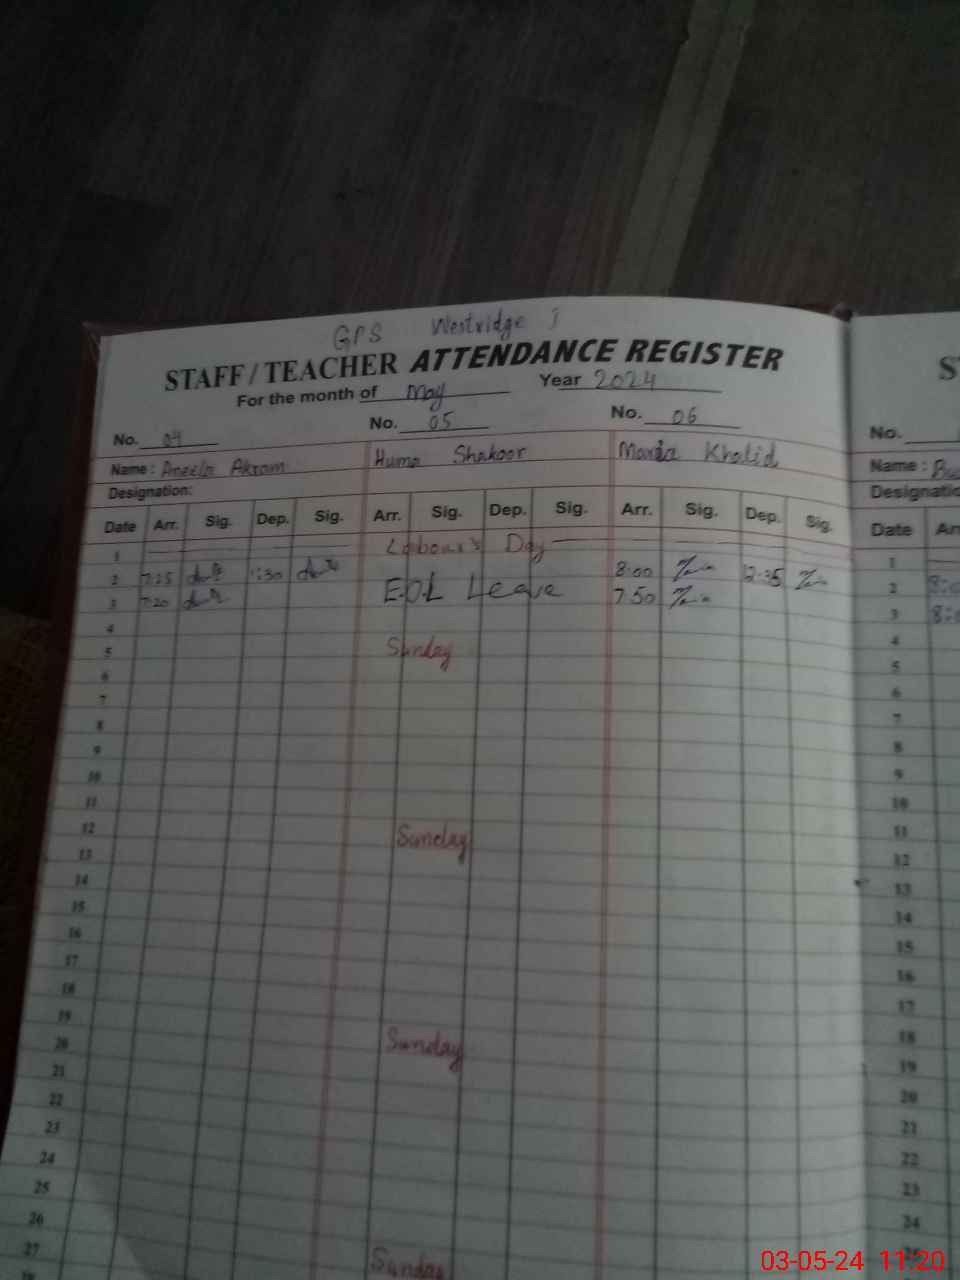 GPS Westridge j
STAFF / TEACHER ATTENDANCE REGISTER
For the month of May Year 2024
No. 04 No. 05 No. 06
Name : Aneela Akram Huma Shakoor Maria Khalid
Designation:
Date Arr. Sig. Dep. Sig. Arr. Sig. Dep. Sig. Arr. Sig. Dep. Sig.
1 Labour's Day
2 7:25 1:30 E.O.L Leave 8:00 12:35
3 7:20 7:50
4
5 Sunday
6
7
8
9
10
11
12 Sunday
13
14
15
16
17
18
19
20 Sunday
21
22
23
24
25
26
27 Sunday
28
No.
Name :
Date
1
2 8:
3 8:
4
5
6
7
8
9
10
11
12
13
14
15
16
17
18
19
20
21
22
23
24
03-05-24 11:20